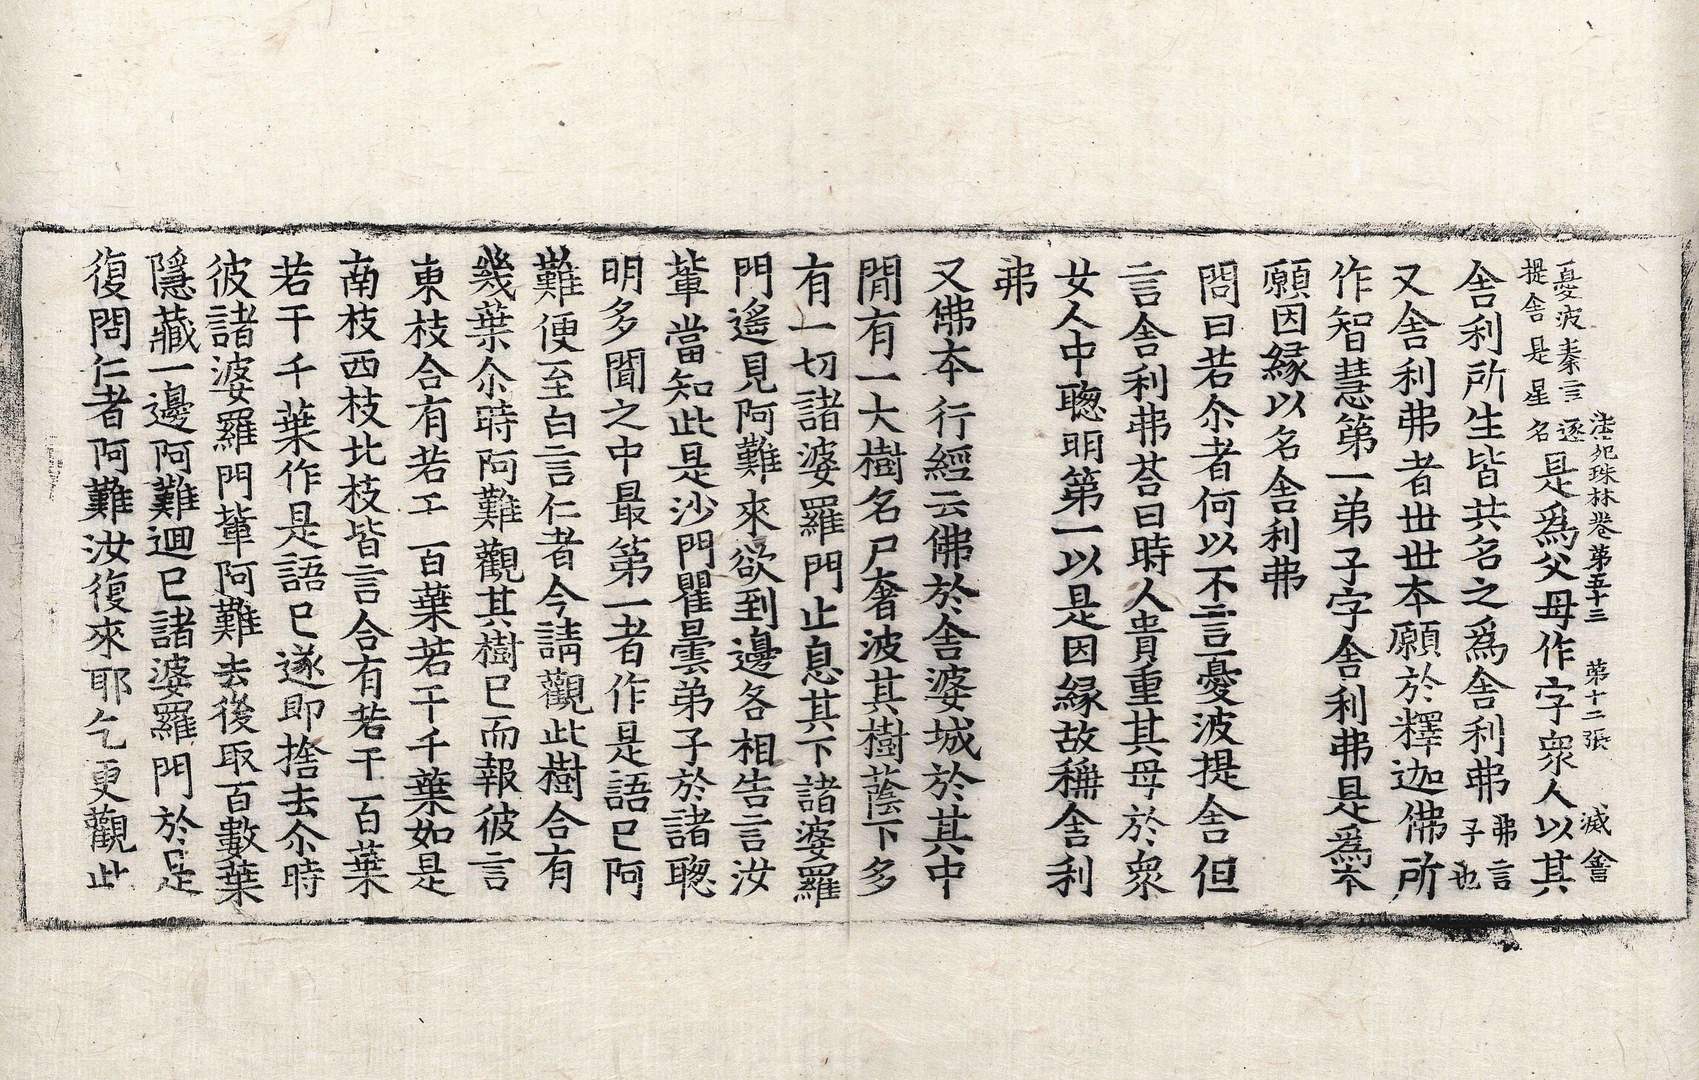 法苑珠林卷第五十三 第十二張 滅 會
憂波秦言逐
提舍是星名
是爲父母作字衆人以其
舍利所生皆共名之爲舍利弗
弗言
子也
又舍利弗者世世本願於釋迦佛所
作智慧第一弟子字舍利弗是爲本
願因緣以名舍利弗
問曰若尒者何以不言憂波提舍但
言舍利弗荅曰時人貴重其母於衆
女人中聦明第一以是因緣故稱舍利
弗
又佛本行經云佛於舍婆城於其中
閒有一大樹名尸奢波其樹蔭下多
有一切諸婆羅門止息其下諸婆羅
門遙見阿難來欲到邊各相告言汝
輩當知此是沙門瞿曇弟子於諸聦
明多聞之中最第一者作是語已阿
難便至白言仁者今請觀此樹合有
幾葉尒時阿難觀其樹已而報彼言
東枝合有若干百葉若干千葉如是
南枝西枝北枝皆言合有若干百葉
若干千葉作是語已遂即捨去尒時
彼諸婆羅門輩阿難去後取百數葉
隱藏一邊阿難迴已諸婆羅門於是
復問仁者阿難汝復來耶乞更觀此